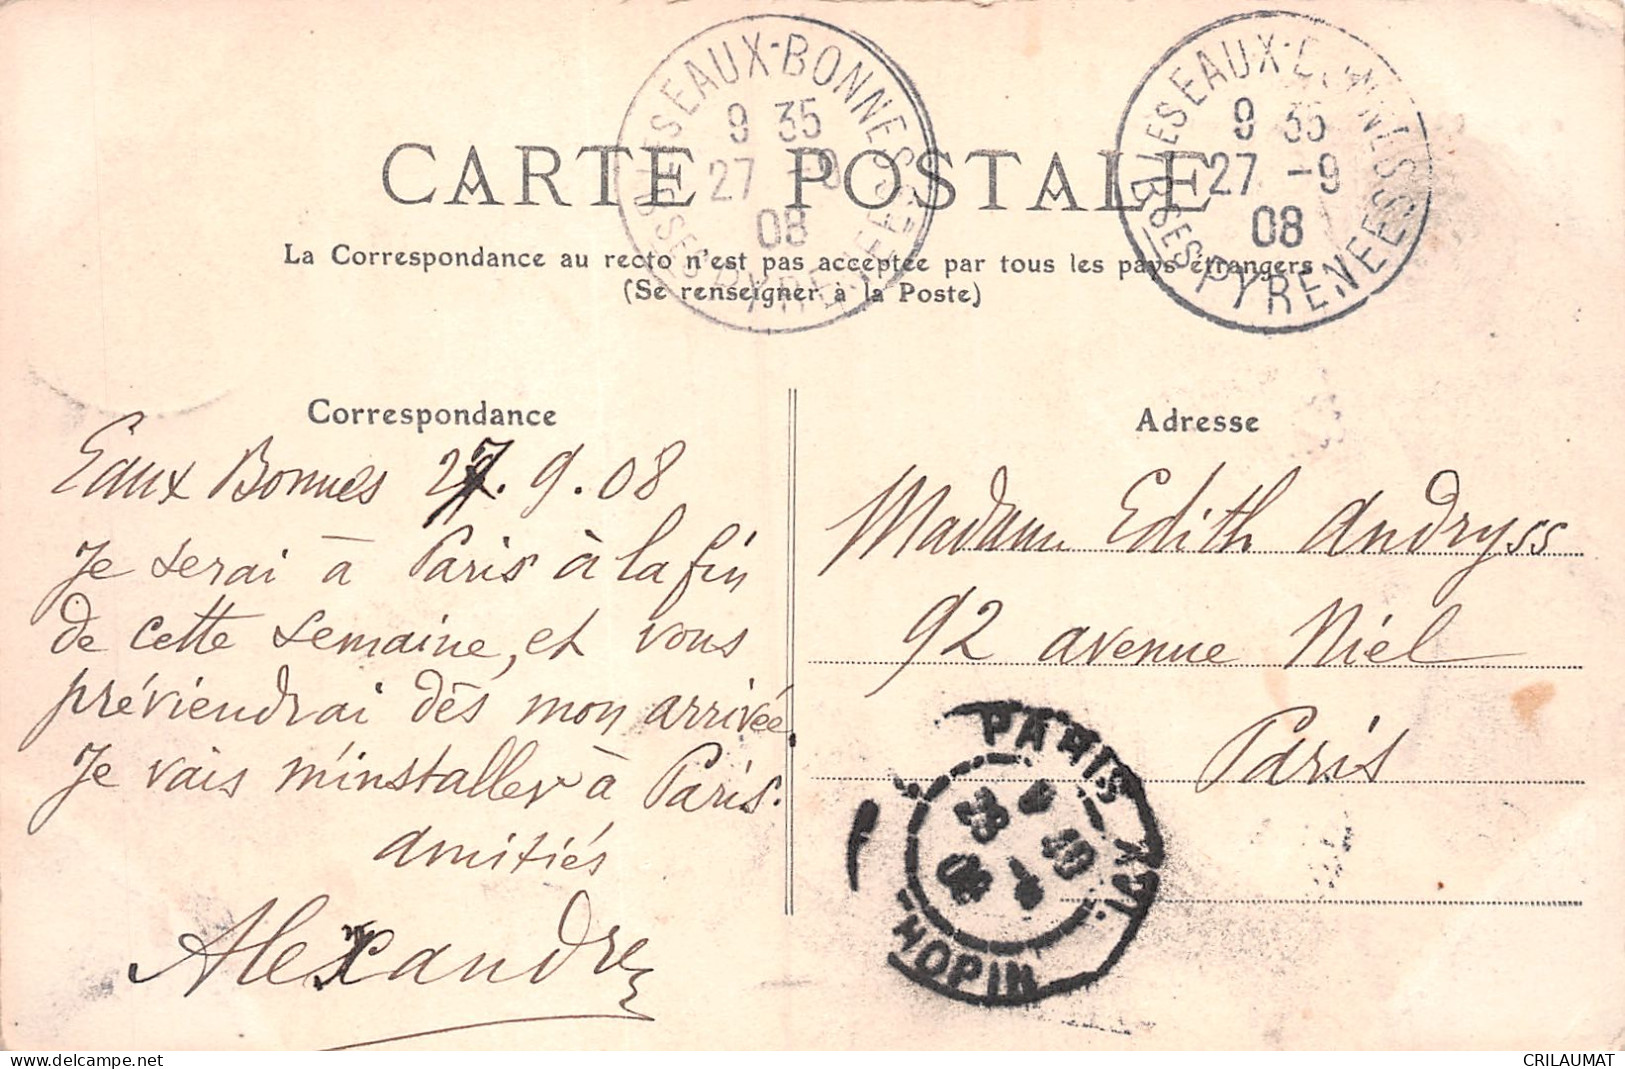 LES EAUX-BONNES
9 35
27 -9
08
BSES PYRENEES
LES EAUX-BONNES
9 35
27 -9
08
BSES PYRENEES
CARTE POSTALE
La Correspondance au recto n'est pas acceptée par tous les pays étrangers
(Se renseigner à la Poste)
Correspondance
Eaux Bonnes 27.9.08
Je serai à Paris à la fin
de cette semaine, et vous
préviendrai dès mon arrivée.
Je vais m'installer à Paris.
Amitiés
Alexandre
Adresse
Madame Edith Andryss
92 avenue Niel
Paris
PARIS XVII
28
10
08
HOPIN
delcampe.net
CRILAUMAT